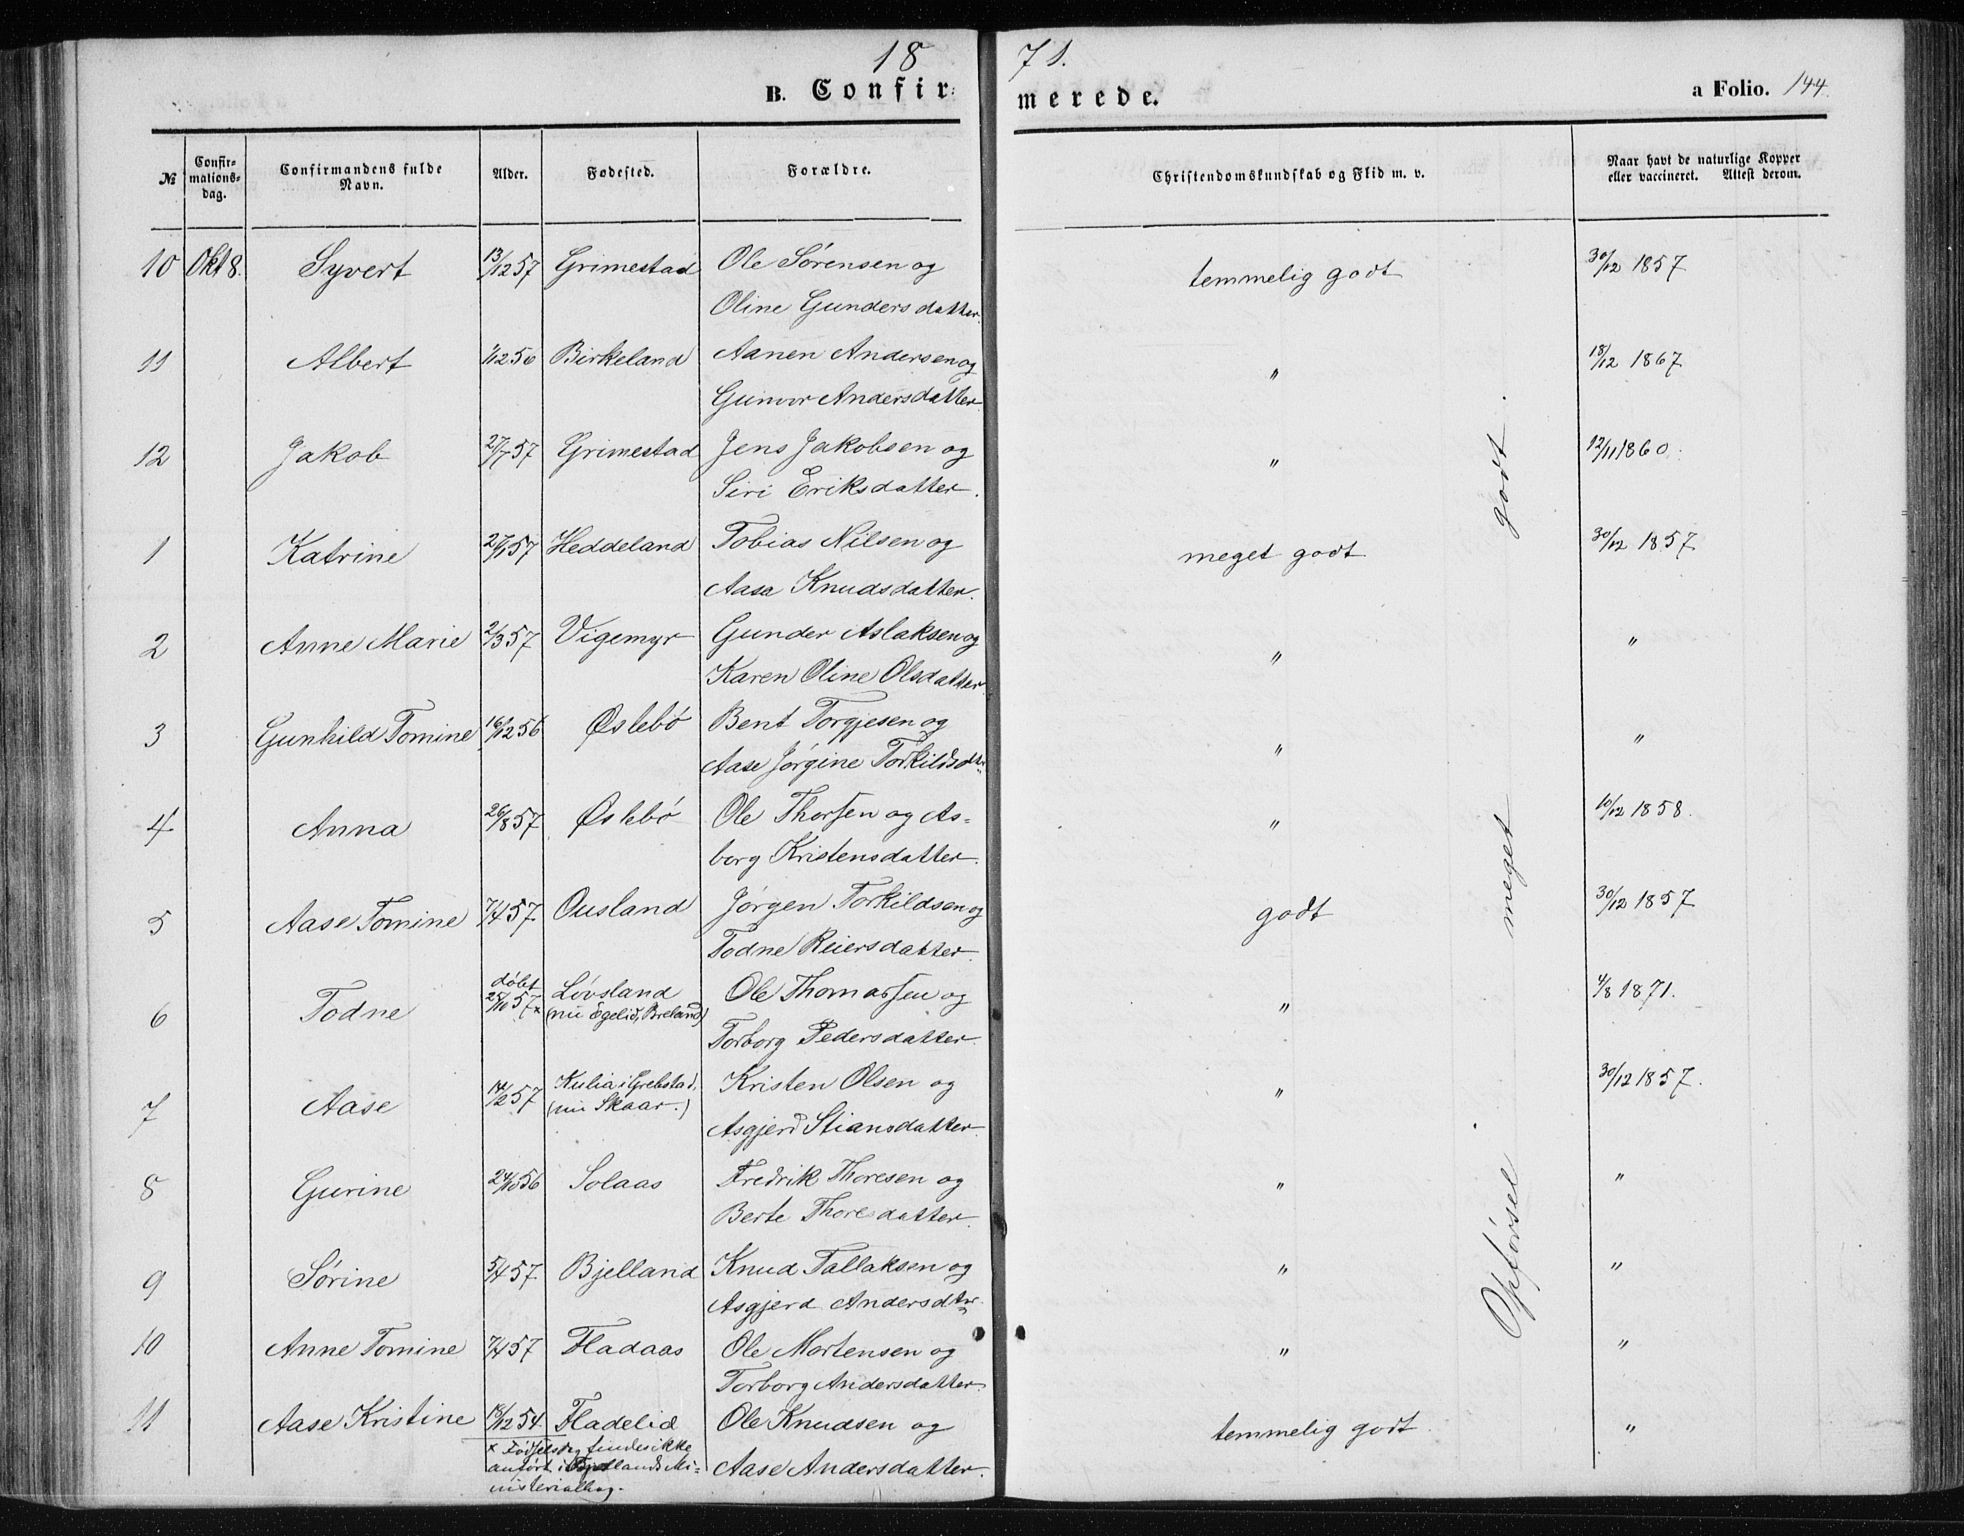 18 71.
B. Confir: merede. a Folio. 144.
№ Confir=mations=dag. Confirmandens fulde Navn. Alder. Fødested. Forældre. Christendomskundskab og Flid m. v. Naar havt de naturlige Kopper eller vaccineret. Attest derom.
10 Okt 8. Syvert 13/12 57 Grimestad Ole Sørensen og temmelig godt 30/12 1857
Oline Gundersdatter.
11 Albert 1/12 56 Birkeland Aanen Andersen og " 18/12 1867
Gunvor Andersdatter.
12 Jakob 27/7 57 Grimestad Jens Jakobsen og " 12/11 1860.
Siri Eriksdatter.
1 Katrine 27/1 57 Heddeland Tobias Nilsen og meget godt 30/12 1857
Aasa Knudsdatter.
2 Anne Marie 2/3 57 Vigemyr Gunder Aslaksen og " "
Karen Oline Olsdatter.
3 Gunhild Tomine 16/12 56 Øslebø Bent Torgjesen og " "
Aase Jørgine Torkildsdtr.
4 Anna 26/8 57 Øslebø Ole Thorsen og As= " 10/12 1858.
borg Kristensdatter.
5 Aase Tomine 7/4 57 Ousland Jørgen Torkildsen og godt 30/12 1857
Todne Reiersdatter.
6 Todne døbt 25/10 57 x Løvsland (nu Egelid, Breland) Ole Thomassen og " 4/8 1871.
Torborg Pedersdatter.
7 Aase 14/2 57 Kulia i Grebstad, (nu Skaar.) Kristen Olsen og " 30/12 1857.
Asgjerd Stiansdatter.
8 Gurine 24/10 56 Solaas Fredrik Thoresen og " "
Berte Thoresdatter.
9 Sørine 5/4 57 Bjelland Knud Tallaksen og " "
Asgjerd Andersdtr.
10 Anne Tomine 7/4 57 Fladaas Ole Mortensen og " "
Torborg Andersdatter.
11 Aase Kristine 18/12 54 Fladelid Ole Knudsen og temmelig godt "
Aase Andersdatter.
x Fødselsdag findes ikke
anført i Bjellands Mi=
nisterialbog.
Opførsel meget godt.